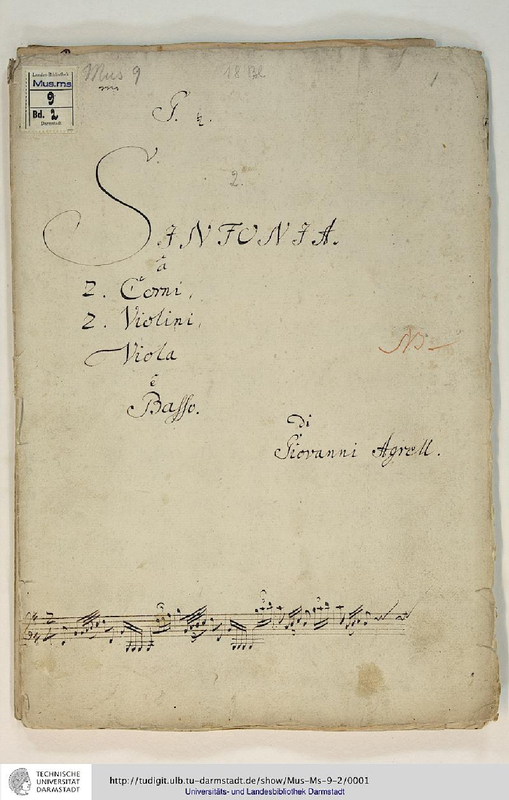 Landes Bibliothek
Mus.ms
9
Bd. 2
Darmstadt
Mus 9
ms
18 Bl
1
2.
SINFONIA.
à
2. Corni,
2. Violini,
Viola
è
Basso.
di
Giovanni Agrell.
TECHNISCHE
UNIVERSITÄT
DARMSTADT
http://tudigit.ulb.tu-darmstadt.de/show/Mus-Ms-9-2/0001
Universitäts- und Landesbibliothek Darmstadt